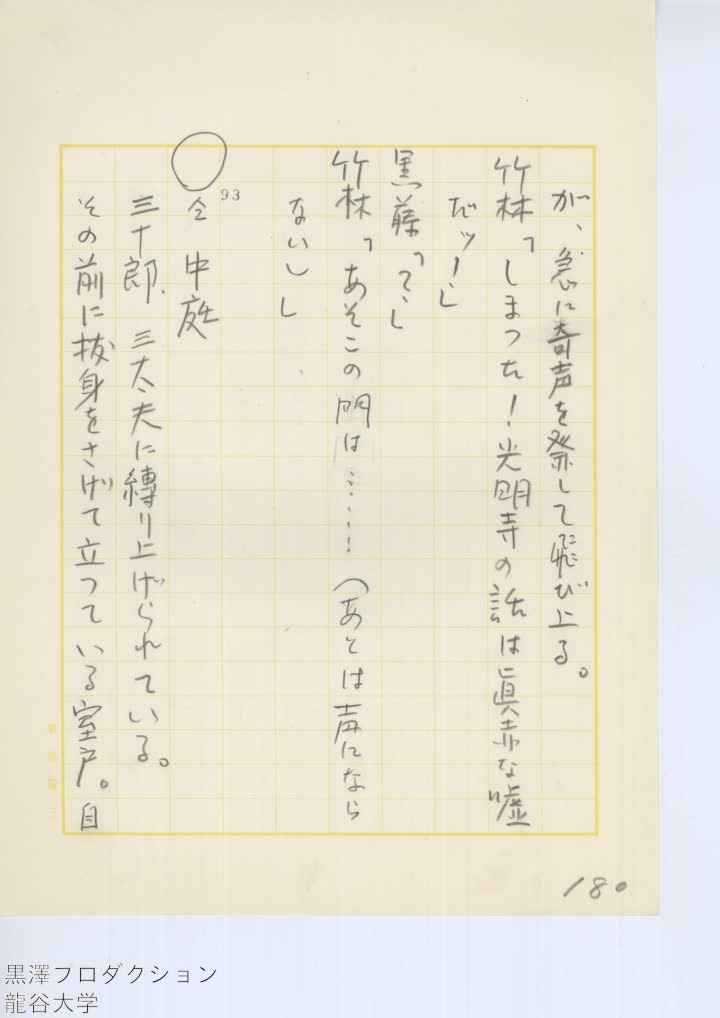 が、急に奇声を発して飛び上る。
竹林「しまつた！光明寺の話は眞赤な嘘
だッ！」
黒藤「て」
竹林「あそこの門は……！（あとは声になら
ない）」
93
仝 中庭
三十郎、三太夫に縛り上げられている。
その前に抜身をさげて立つている室戸。自
180
黒澤プロダクション
龍谷大学